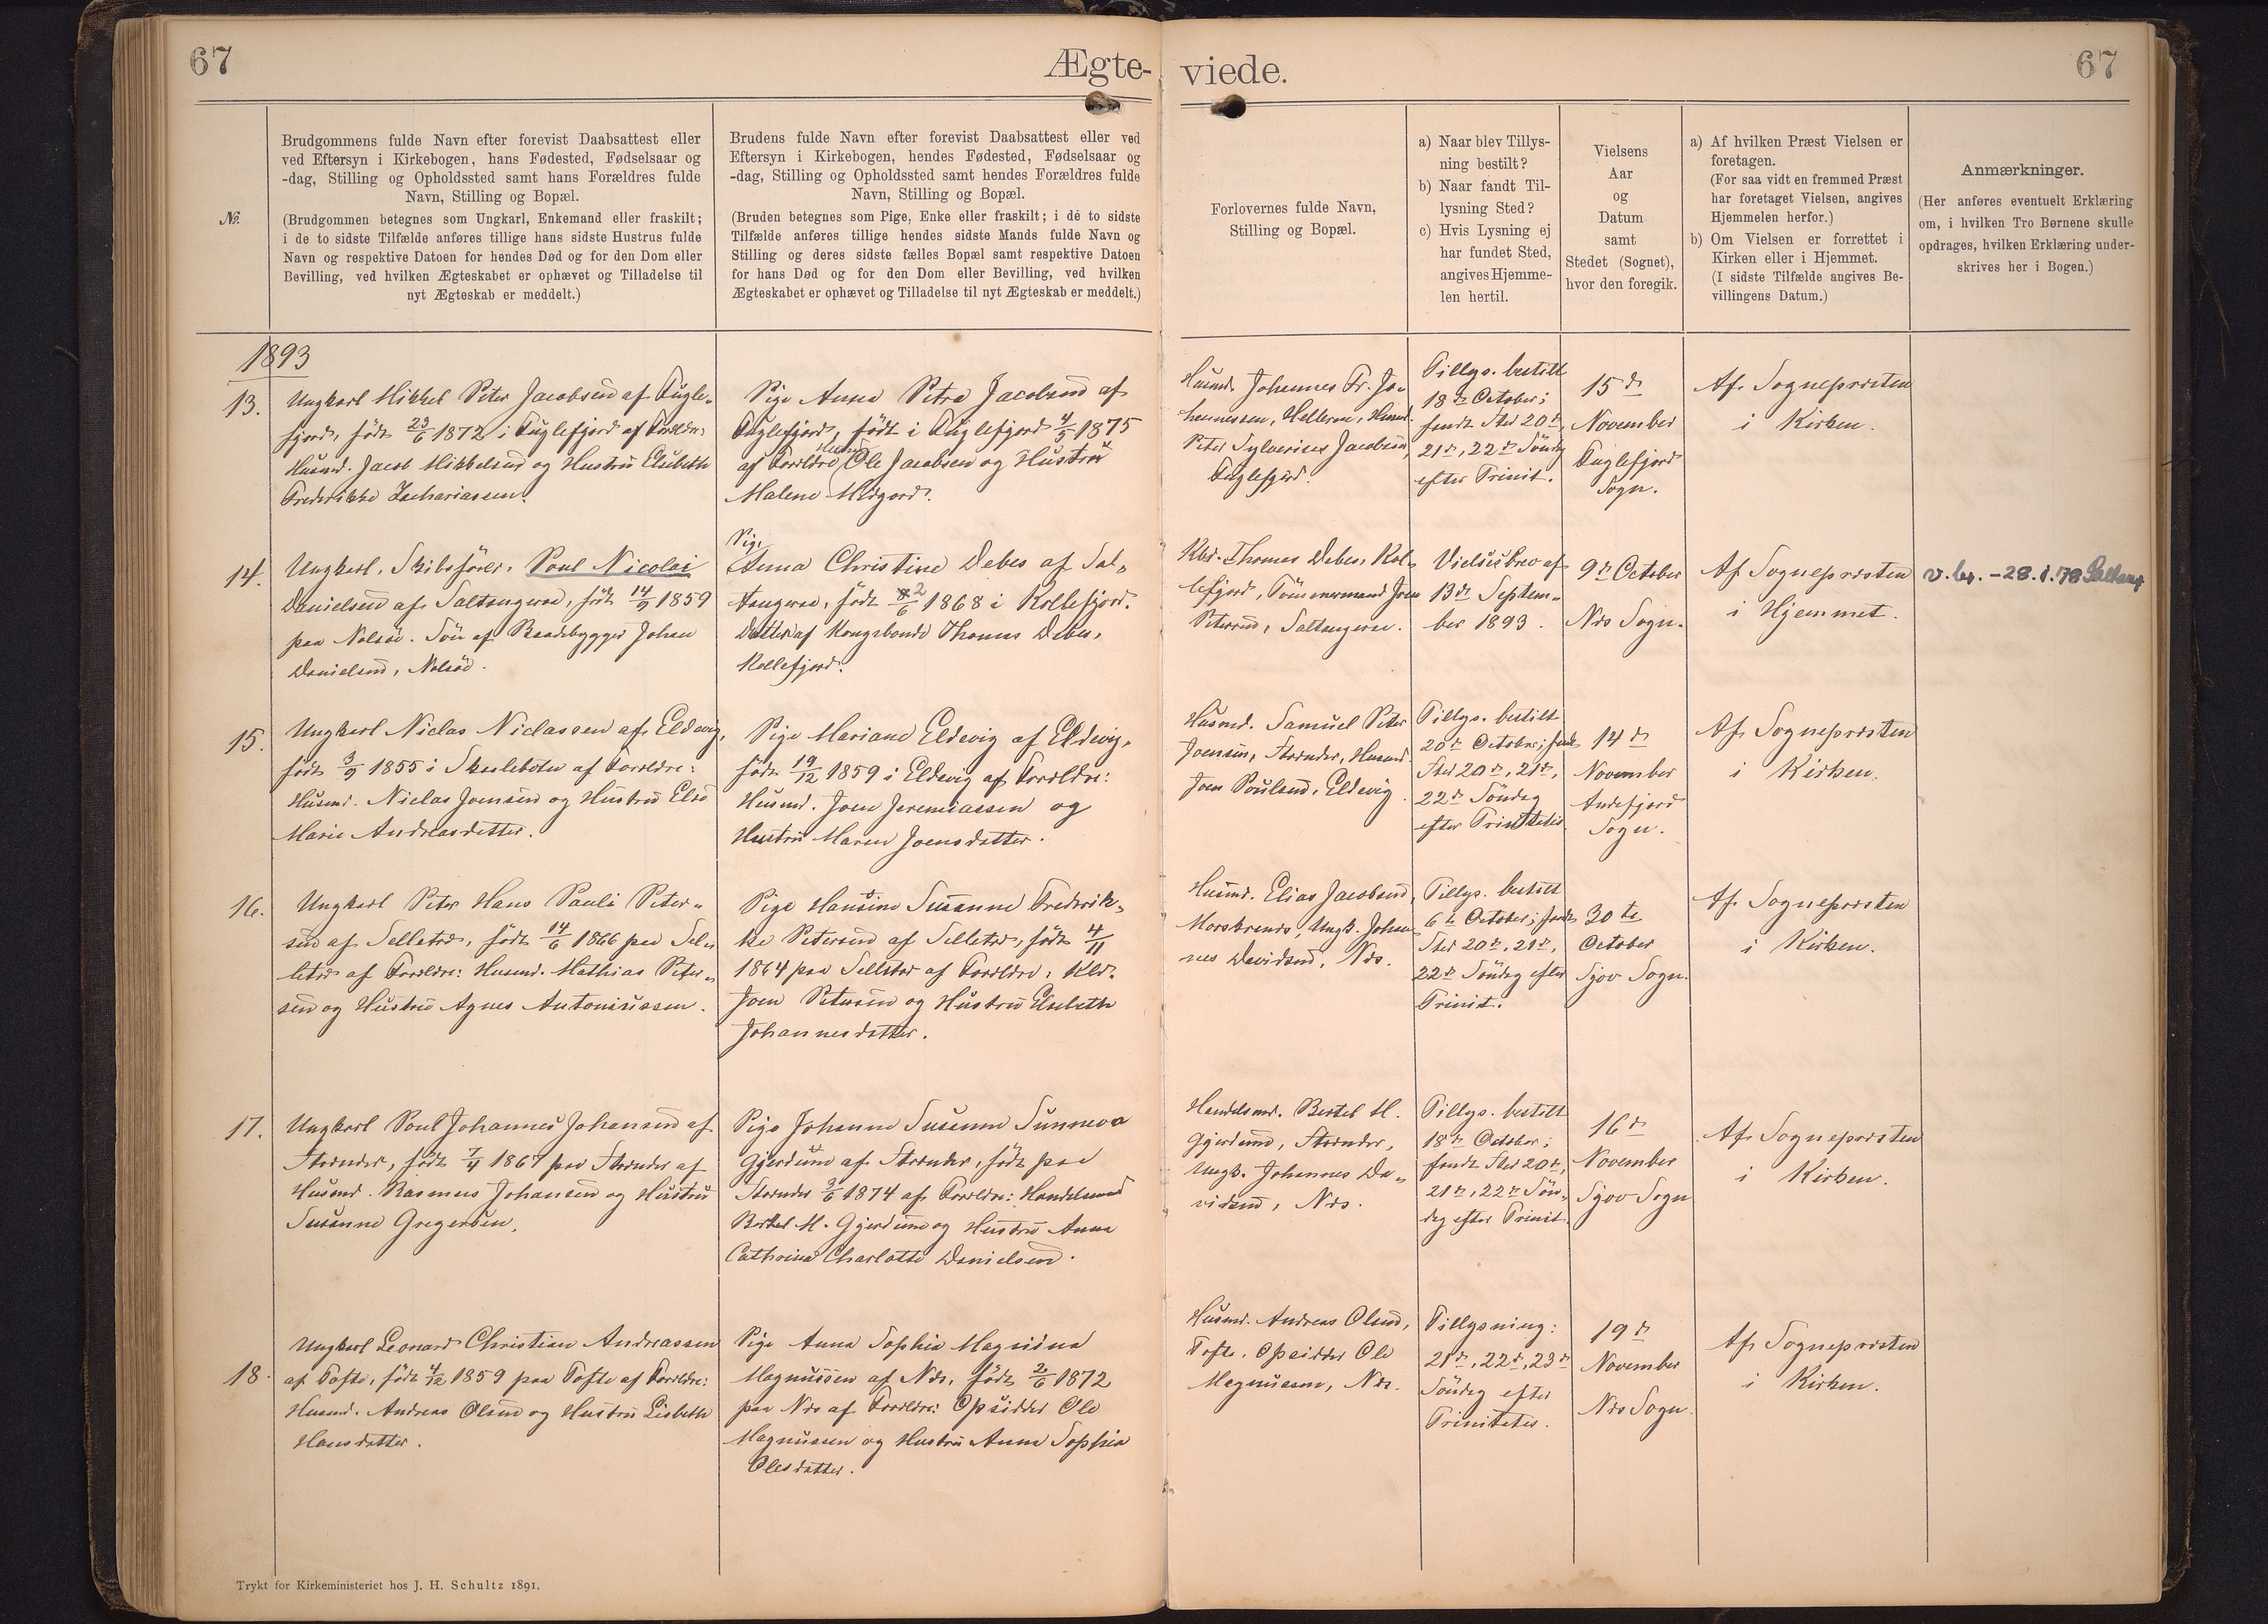 67
Ægte-
viede.
67
No.
Brudgommens fulde Navn efter forevist Daabsattest eller
ved Eftersyn i Kirkebogen, hans Fødested, Fødselsaar og
-dag, Stilling og Opholdssted samt hans Forældres fulde
Navn, Stilling og Bopæl.
(Brudgommen betegnes som Ungkarl, Enkemand eller fraskilt;
i de to sidste Tilfælde anføres tillige hans sidste Hustrus fulde
Navn og respektive Datoen for hendes Død og for den Dom eller
Bevilling, ved hvilken Ægteskabet er ophævet og Tilladelse til
nyt Ægteskab er meddelt.)
Brudens fulde Navn efter forevist Daabsattest eller ved
Eftersyn i Kirkebogen, hendes Fødested, Fødselsaar og
-dag, Stilling og Opholdssted samt hendes Forældres fulde
Navn, Stilling og Bopæl.
(Bruden betegnes som Pige, Enke eller fraskilt; i de to sidste
Tilfælde anføres tillige hendes sidste Mands fulde Navn og
Stilling og deres sidste fælles Bopæl samt respektive Datoen
for hans Død og for den Dom eller Bevilling, ved hvilken
Ægteskabet er ophævet og Tilladelse til nyt Ægteskab er meddelt.)
Forlovernes fulde Navn,
Stilling og Bopæl.
a) Naar blev Tillys-
ning bestilt?
b) Naar fandt Til-
lysning Sted?
c) Hvis Lysning ej
har fundet Sted,
angives Hjemme-
len hertil.
Vielsens
Aar
og
Datum
samt
Stedet (Sognet),
hvor den foregik.
a) Af hvilken Præst Vielsen er
foretagen.
(For saa vidt en fremmed Præst
har foretaget Vielsen, angives
Hjemmelen herfor.)
b) Om Vielsen er forrettet i
Kirken eller i Hjemmet.
(I sidste Tilfælde angives Be-
villingens Datum.)
Anmærkninger.
(Her anføres eventuelt Erklæring
om, i hvilken Tro Børnene skulle
opdrages, hvilken Erklæring under-
skrives her i Bogen.)
1893
13.
Ungkarl Mikkel Peter Jacobsen af Fugle-
fjord, født 23/6 1872 i Fuglefjord af Forældre:
Husmd. Jacob Mikkelsen og Hustru Elsebeth
Frederikke Zachariassen.
Pige Anna Petra Jacobsen af
Fuglefjord, født i Fuglefjord 4/5 1875
af Forældre Husmd. Ole Jacobsen og Hustru
Malene Midgord.
Husmd. Johannes Fr. Jo-
hannessen, Hellerne, Husmd.
Peter Sylverius Jacobsen,
Fuglefjord.
Tillys. bestilt
18de October;
fandt Sted 20de,
21de, 22de Søndag
efter Trinit.
15de
November
Fuglefjord
Sogn.
Af Sognepræsten
i Kirken.
14.
Ungkarl, Skibsfører, Poul Nicolai
Danielsen af Saltangeraa, født 14/9 1859
paa Nolsø. Søn af Baadebygger Johan
Danielsen, Nolsø.
Pige
Anna Christine Debes af Sal-
tangeraa, født 2/6 1868 i Kollefjord.
Datter af Kongsbonde Thomas Debes,
Kollefjord.
Kbd. Thomas Debes, Kol-
lefjord, Tømmermand Joen
Petersen, Saltangeraa.
Vielsesbrev af
13de Septem-
ber 1893.
9de October
Næs Sogn.
Af Sognepræsten
i Hjemmet.
v. br. - 28.1.78
15.
Ungkarl Niclas Niclassen af Eldevig,
født 3/9 1855 i Skaalebotn af Forældre:
Husmd. Niclas Joensen og Hustru Else
Marie Andreasdatter.
Pige Mariane Eldevig af Eldevig,
født 19/12 1859 i Eldevig af Forældre:
Husmd. Joen Jeremiassen og
Hustru Maren Joensdatter.
Husmd. Samuel Peter
Joensen, Strænder, Husmd.
Joen Poulsen, Eldevig.
Tillys. bestilt
20de October; fandt
Sted 20de, 21de,
22de Søndag
efter Trinitatis
14de
November
Andefjord
Sogn.
Af Sognepræsten
i Kirken.
16.
Ungkarl Peter Hans Pauli Peter-
sen af Selletræ, født 14/6 1866 paa Sel-
letræ af Forældre: Husmd. Mathias Peter-
sen og Hustru Agnes Antoniussen.
Pige Hansine Susanne Frederik-
ke Petersen af Selletræ, født 4/11
1864 paa Selletræ af Forældre: Kbd.
Joen Petersen og Hustru Elsebeth
Johannesdatter.
Husmd. Elias Jacobsen,
Morskranes, Ungk. Johan-
nes Davidsen, Næs.
Tillys. bestilt
6te October; fandt
Sted 20de, 21de,
22de Søndag efter
Trinit.
30te
October
Sjov Sogn.
Af Sognepræsten
i Kirken.
17.
Ungkarl Poul Johannes Johansen af
Strænder, født 7/4 1867 paa Strænder af
Husmd. Rasmus Johansen og Hustru
Susanne Gregersen.
Pige Johanne Susanne Sunneva
Gjerdum af Strænder, født paa
Strænder 9/6 1874 af Forældre: Handelsmand
Bertel M. Gjerdum og Hustru Anna
Cathrine Charlotte Danielsen.
Handelsmd. Bertel M.
Gjerdum, Strænder,
Ungk. Johannes Da-
vidsen, Næs.
Tillys. bestilt
18de October;
fandt Sted 20de,
21de, 22de Søn-
dag efter Trinit.
16de
November
Sjov Sogn
Af Sognepræsten
i Kirken.
18.
Ungkarl Leonard Christian Andreassen
af Tofte, født 4/12 1859 paa Tofte af Forældre:
Husmd. Andreas Olsen og Hustru Lisbeth
Hansdatter.
Pige Anna Sophia Magnidna
Magnussen af Næs, født 2/6 1872
paa Næs af Forældre: Opsidder Ole
Magnussen og Hustru Anna Sophia
Olesdatter.
Husmd. Andreas Olsen,
Tofte. Opsidder Ole
Magnussen, Næs.
Tillysning:
21de, 22de, 23de
Søndag efter
Trinitatis.
19de
November
Næs Sogn.
Af Sognepræsten
i Kirken.
Trykt for Kirkeministeriet hos J. H. Schultz 1891.